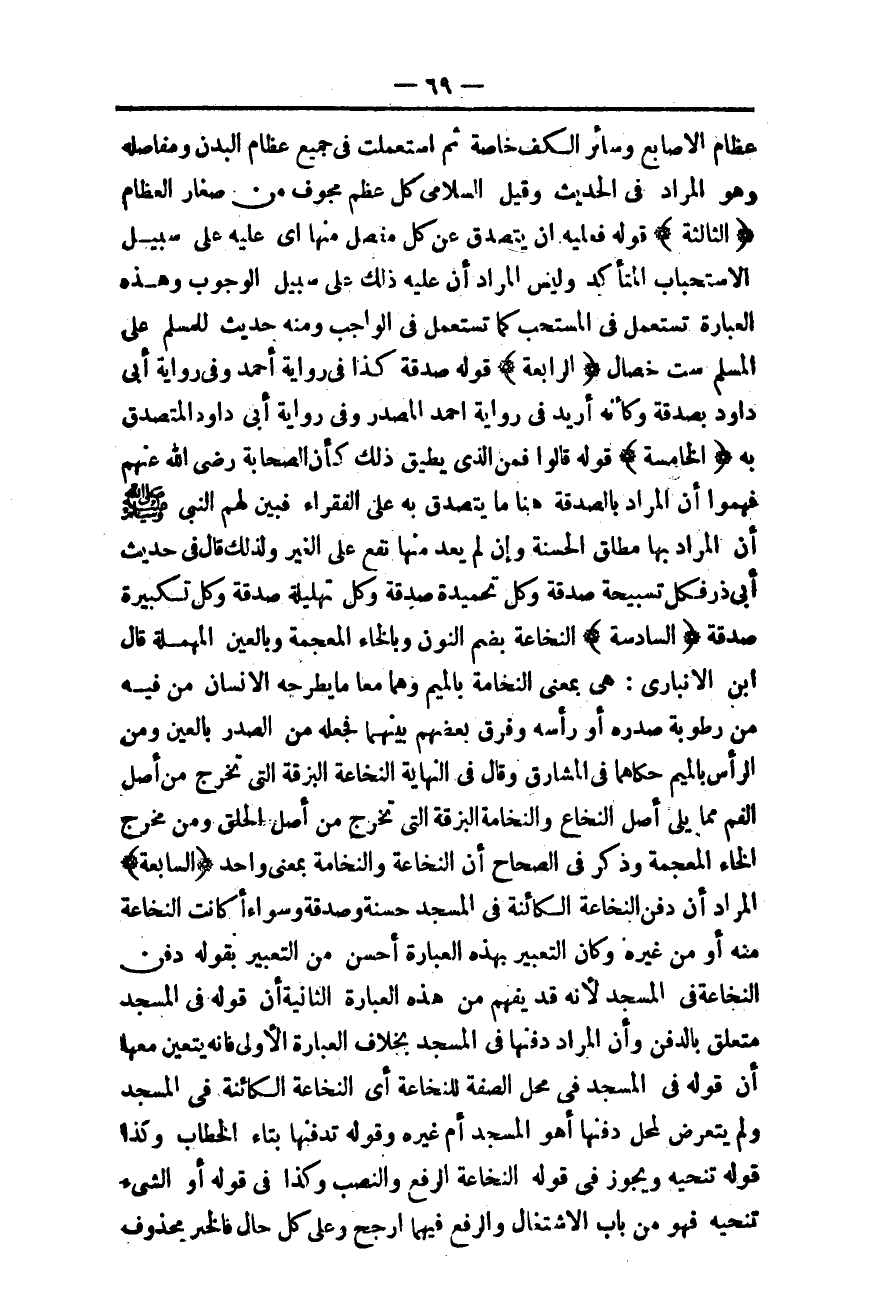 — ٦٩ —
عظام الاصابع وسائر الكف خاصة ثم استعملت فى جميع عظام البدن ومفاصله
وهو المراد فى الحديث وقيل السلامى كل عظم مجوف من صغار العظام
﴿ الثالثة ﴾ قوله فعليه ان يتصدق عن كل مفصل منها اى عليه على سبيل
الاستحباب المتأكد وليس المراد أن عليه ذلك على سبيل الوجوب وهذه
العبارة تستعمل فى المستحب كما تستعمل فى الواجب ومنه حديث للمسلم على
المسلم ست خصال ﴿ الرابعة ﴾ قوله صدقة كذا فى رواية أحمد وفى رواية أبى
داود بصدقة وكأنه أريد فى رواية احمد المصدر وفى رواية أبى داود المتصدق
به ﴿ الخامسة ﴾ قوله قالوا فمن الذى يطيق ذلك كأن الصحابة رضى الله عنهم
فهموا أن المراد بالصدقة هنا ما يتصدق به على الفقراء فبين لهم النبى ﷺ
أن المراد بها مطلق الحسنة وإن لم يعد منها نفع على الغير ولذلك قال فى حديث
أبى ذر فكل تسبيحة صدقة وكل تحميدة صدقة وكل تهليلة صدقة وكل تكبيرة
صدقة ﴿ السادسة ﴾ النخاعة بضم النون وبالخاء المعجمة وبالعين المهملة قال
ابن الانبارى : هى بمعنى النخامة بالميم وهما معا ما يطرحه الانسان من فيه
من رطوبة صدره أو رأسه وفرق بعضهم بينهما فجعله من الصدر بالعين ومن
الرأس بالميم حكاهما فى المشارق وقال فى النهاية النخاعة البزقة التى تخرج من أصل
الفم مما يلى أصل النخاع والنخامة البزقة التى تخرج من أصل الحلق ومن مخرج
الخاء المعجمة وذكر فى الصحاح أن النخاعة والنخامة بمعنى واحد ﴿السابعة﴾
المراد أن دفن النخاعة الكائنة فى المسجد حسنة وصدقة وسواء أكانت النخاعة
منه أو من غيره وكان التعبير بهذه العبارة أحسن من التعبير بقوله دفن
النخاعة فى المسجد لأنه قد يفهم من هذه العبارة الثانية أن قوله فى المسجد
متعلق بالدفن وأن المراد دفنها فى المسجد بخلاف العبارة الأولى فانه يتعين معها
أن قوله فى المسجد فى محل الصفة للنخاعة أى النخاعة الكائنة فى المسجد
ولم يتعرض لمحل دفنها أهو المسجد أم غيره وقوله تدفنها بتاء الخطاب وكذا
قوله تنحيه ويجوز فى قوله النخاعة الرفع والنصب وكذا فى قوله أو الشىء
تنحيه فهو من باب الاشتغال والرفع فيهما ارجح وعلى كل حال فالخبر محذوف